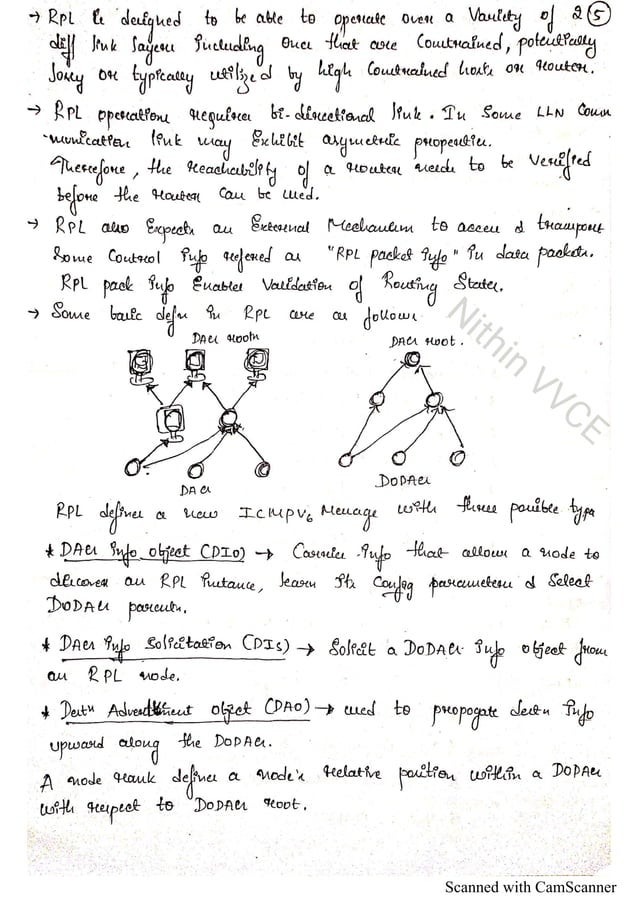 → RPL is designed to be able to operate over a Variety of 25
diff link layers including ones that are Constrained, potentially
lossy or typically utilized by high Constrained hosts or Routers.
→ RPL operations requires bi-directional link. In some LLN Com
-munication link may Exhibit asymetric properties.
Therefore, the Reachability of a Router needs to be Verified
before the router can be used.
→ RPL also Expects an External Mechanism to access & transport
Some Control info refered as "RPL packet info" in data packets.
RPL pack info Enables Validation of Routing States.
→ Some basic defns in RPL are as follows
DAG roots DAG root.
DAG DODAG
RPL defines a new ICMPV6 Message with three possible type
* DAG info object (DIO) → Carries info that allows a node to
discover an RPL Instance, learn its Config parameters & Select
DODAG parents.
* DAG info Solicitation (DIS) → Solicit a DODAG info object from
an RPL node.
* Destn Advertisment object (DAO) → used to propogate destn info
upward along the DODAG.
A node Rank defines a node's relative position within a DODAG
with respect to DODAG root.
Nithin VVCE
Scanned with CamScanner